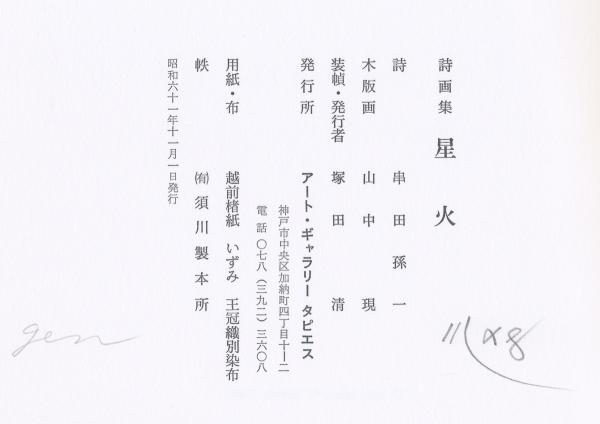 詩画集 星火
詩 串田孫一
木版画 山中現
装幀・発行者 塚田清
発行所 アート・ギャラリー タピエス
神戸市中央区加納町四丁目十—二
電話 〇七八(三九二)三六〇八
用紙・布 越前楮紙 いずみ 王冠織別染布
帙 ㈲須川製本所
昭和六十一年十一月一日発行
gen